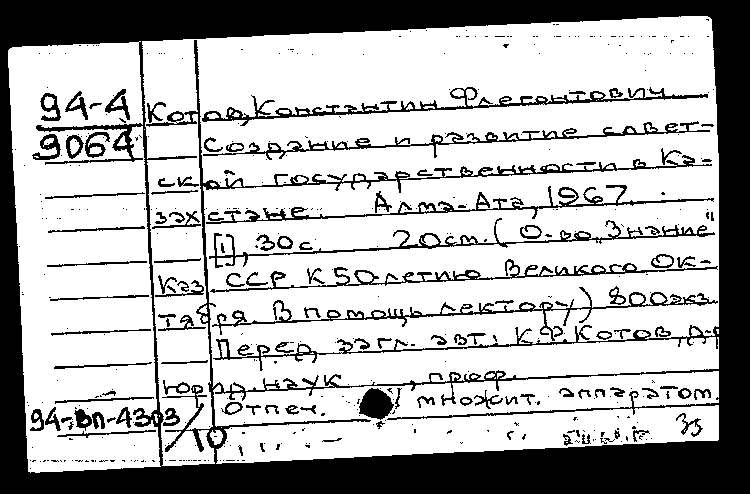 94-4 Котов, Константин Флегонтович
9064 Создание и развитие совет-
ской государственности в Ка-
захстане. Алма-Ата, 1967.
[1], 30с. 20см. (О-во "Знание"
Каз. ССР. К 50-летию Великого Ок-
тября. В помощь лектору) 800экз.
Перед загл. авт.: К.Ф. Котов, д-р
юрид. наук, проф.
94-вп-4303 Отпеч. множит. аппаратом.
10 35